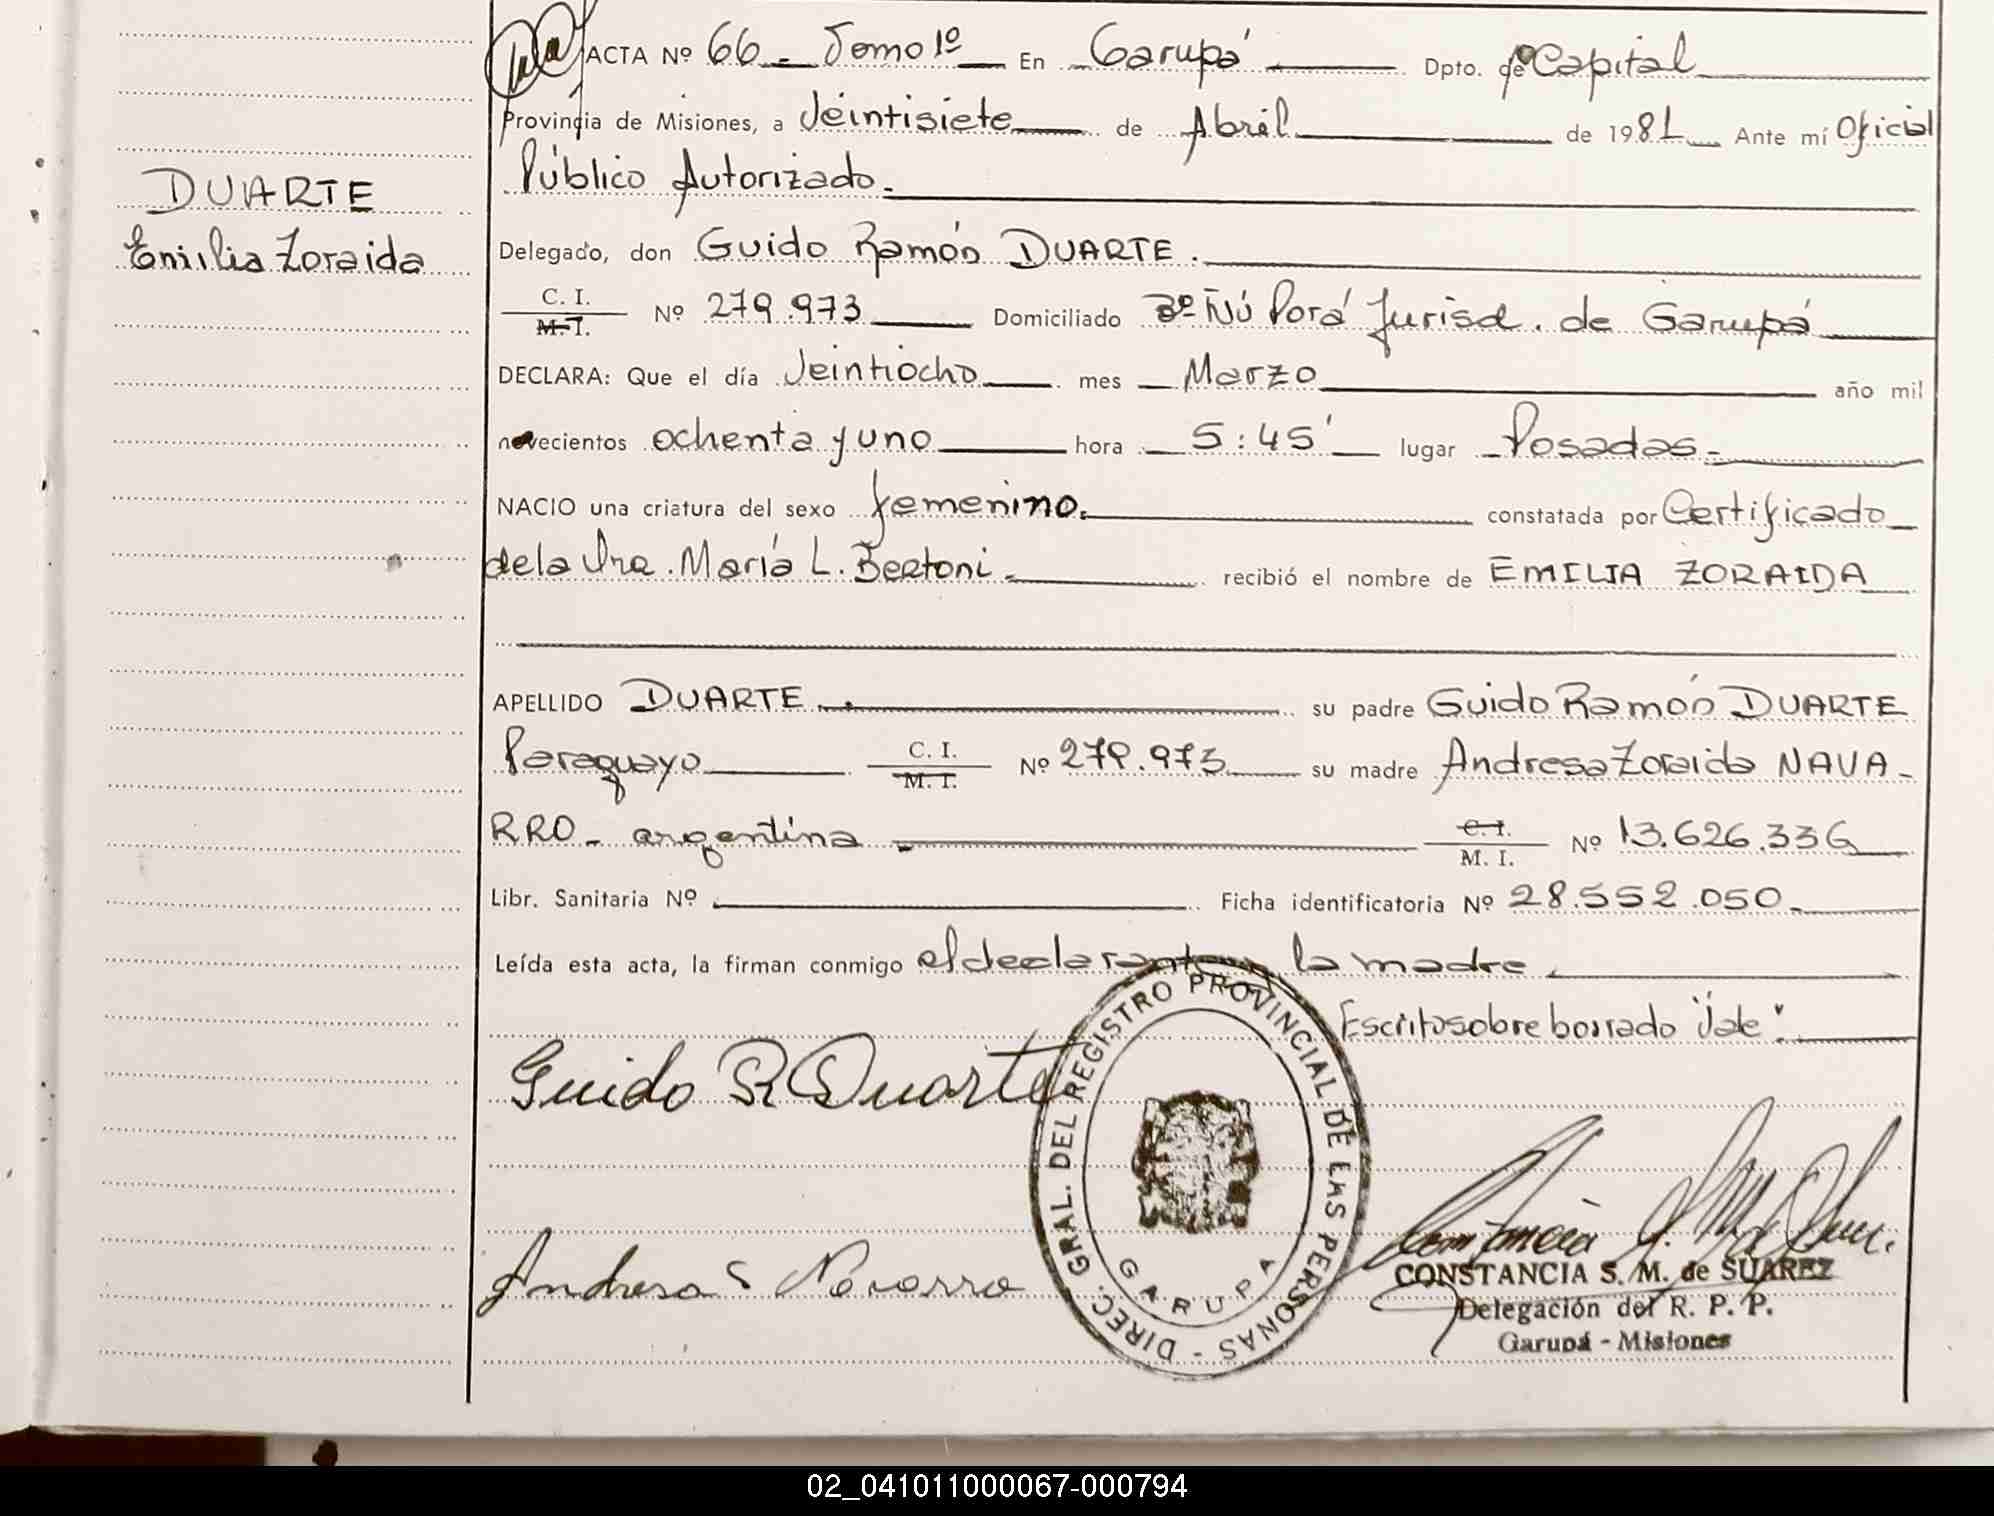 ACTA Nº 66 - Tomo 1º En Garupá Dpto. de Capital
Provincia de Misiones, a Veintisiete de Abril de 1981 Ante mí Oficial
Público Autorizado.
DUARTE
Emilia Zoraida
Delegado, don Guido Ramón DUARTE.
C. I. M. I. Nº 279.973 Domiciliado Bº Ñú Porá Jurisd. de Garupá
DECLARA: Que el día Veintiocho mes Marzo año mil
novecientos ochenta y uno hora 5:45' lugar Posadas.
NACIO una criatura del sexo femenino. constatada por Certificado
de la Dra. María L. Bertoni. recibió el nombre de EMILIA ZORAIDA
APELLIDO DUARTE. su padre Guido Ramón DUARTE
Paraguayo C. I. M. I. Nº 279.973 su madre Andresa Zoraida NAVA-
RRO - argentina C. I. M. I. Nº 13.626.336
Libr. Sanitaria Nº Ficha identificatoria Nº 28.552.050.
Leída esta acta, la firman conmigo el declarante y la madre.
Escrito sobre borrado "Vale".
Guido R Duarte
DIREC. GRAL. DEL REGISTRO PROVINCIAL DE LAS PERSONAS -
GARUPA
Andresa Navarro
CONSTANCIA S. M. de SUAREZ
Delegación del R. P. P.
Garupá - Misiones
02_041011000067-000794